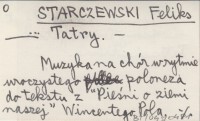 o STARCZEWSKI Feliks
—..— Tatry. —
Muzyka na chór w rytmie
uroczystego poloneza
do tekstu z "Pieśni o ziemi
naszej" Wincentego Pola